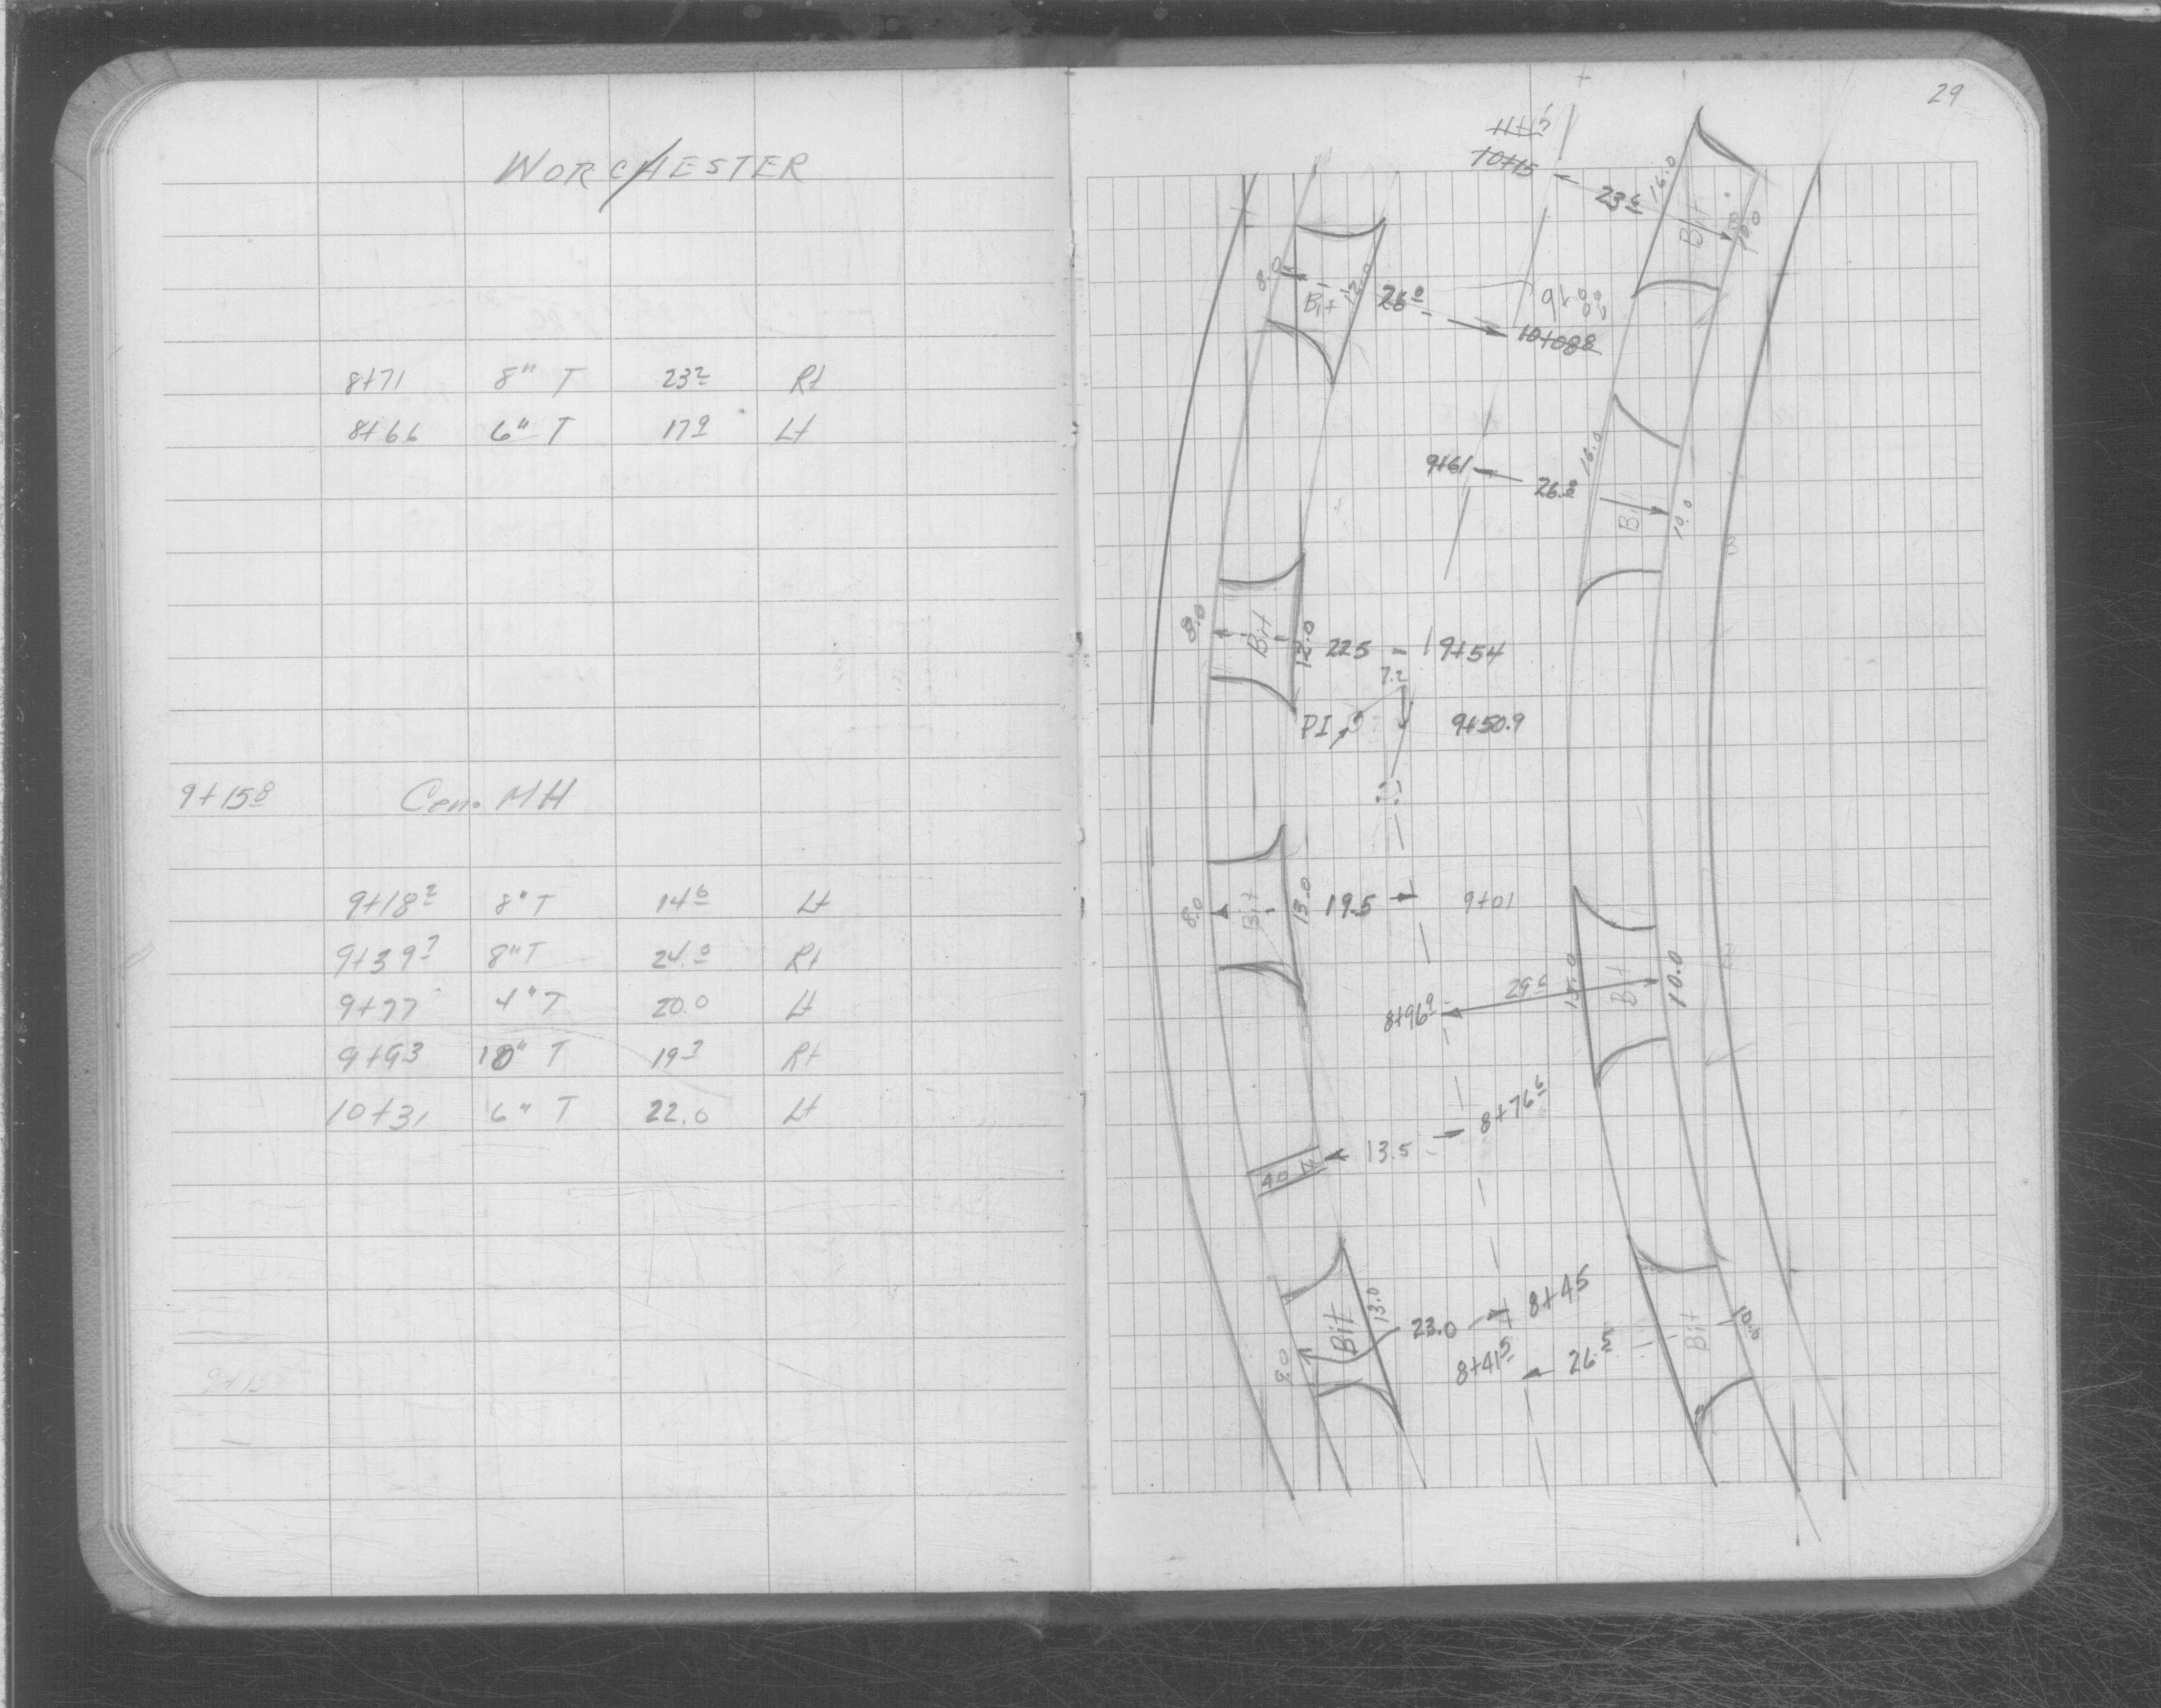 WORCHESTER
8+71 8" T 23² Rt
8+66 6" T 17⁹ Lt
9+15⁸ Cen. MH
9+18² 8" T 14⁶ Lt
9+39⁷ 8" T 24.⁰ Rt
9+77 4" T 20.0 Lt
9+93 10" T 19⁷ Rt
10+31 6" T 22.0 Lt
9+15
29
10+15
23⁶ 16.0 Bit 10.0
8.0 Bit 12.0 26⁰ 9+88⁸
10+08⁸
9+61 26.⁸ 16.0 Bit 10.0
8.0 Bit 12.0 22.5 9+54
7.2
PI 9+50.9
8.0 Bit 13.0 19.5 9+01
8+96⁹ 29⁶ 15.0 Bit 10.0
4.0 W 13.5 8+76⁶
9.0 Bit 13.0 23.0 8+45
8+41⁵ 26.⁵ Bit 10.0